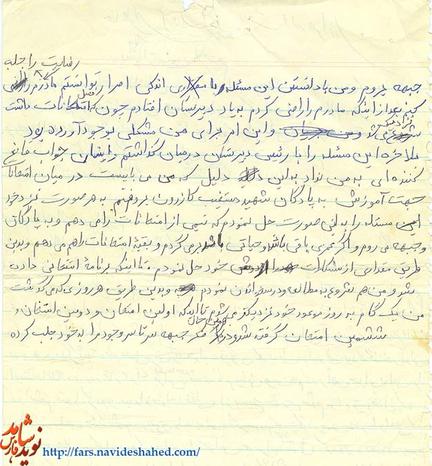 رضایت را جلب
جبهه بروم و من با دانستن این مسئله با مقداری اندکی اصرار توانستم مادرم را راضی
کنم بعد از اینکه مادرم را راضی کردم به یاد دبیرستان افتادم چون که امتحانات داشت
شروع می شد و این امر برای من مشکلی بوجود آورده بود
بالاخره این مسئله را با رئیس دبیرستان درمیان گذاشتم و ایشان جواب قانع
کننده ای به من نداد به این دلیل که من می بایست در میان امتحانات
جهت آموزش به پادگان شهید دستغیب کازرون بروم به هر صورت نیز خود
این مسئله را به این صورت حل نمودم که نیمی از امتحانات را می دهم و به پادگان
و جبهه می روم و اگر عمری باقی باشد و حیاتی باشد برمی گردم و بقیه امتحانات را هم می دهم و بدین
طریق مقداری از مشکلات خود حل نمودم. تا اینکه برنامه امتحانی داده
شد و من هم شروع به مطالعه و درس خواندن نمودم و بدین طریق هر روزی که می گذشت
من یک گام به روز موعود خود نزدیکتر می شدم تا اینکه اولین امتحان و دومین امتحان و
ششمین امتحان گرفته شد و در همین حال فکر جبهه سر تا سر وجود مرا به خود جلب کرده
نوید شاهد فارس
http://fars.navideshahed.com/